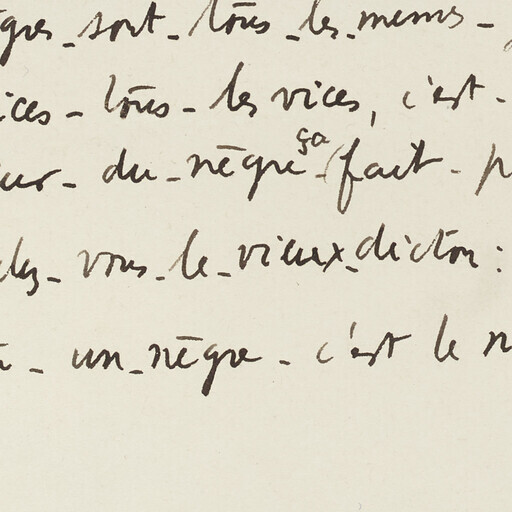 gres-sont-tous-les-mêmes-
ices-tous-les vices, c'est-
eur-du-nègre-ça fait-p
lez-vous-le-vieux-dicton:
un-nègre-c'est le n